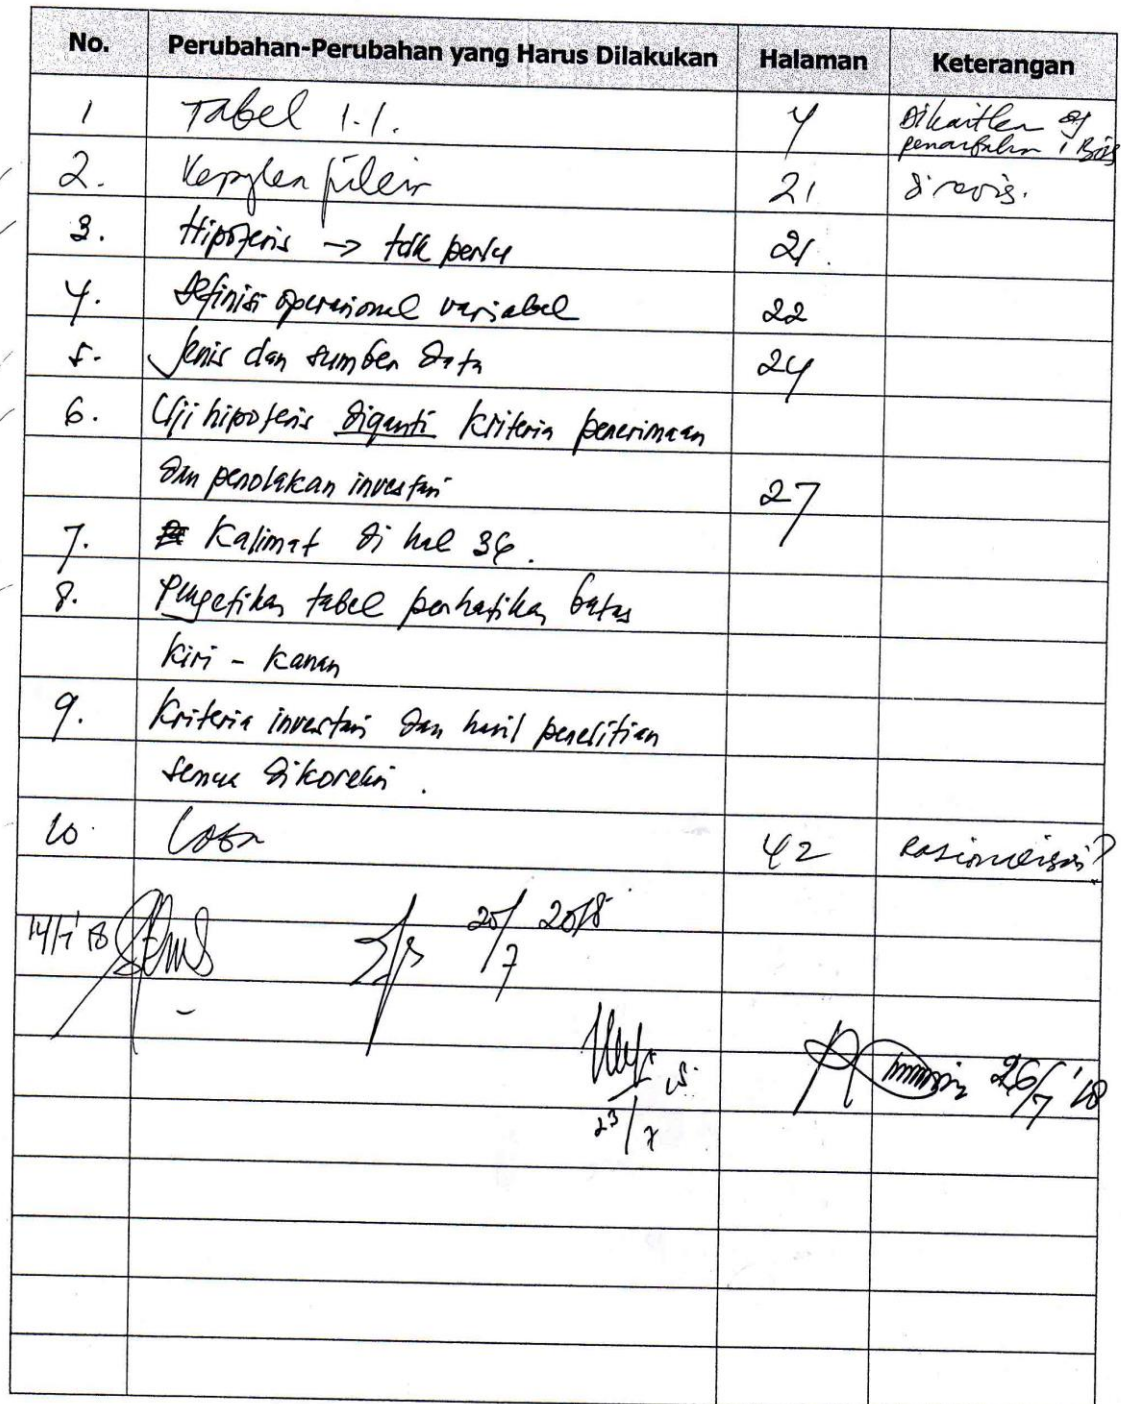 No. Perubahan-Perubahan yang Harus Dilakukan Halaman Keterangan
1 Tabel 1.1. 4 Dikaitkan dg
penambahan
2. 21 direvisi.
3. Hipotesis → tdk perlu 21.
4. Definisi operasional variabel 22
5. Jenis dan sumber data 24
6. Uji hipotesis diganti kriteria penerimaan
dan penolakan investasi 27
7. Kalimat di hal 36.
8. Pengetikan tabel perhatikan batas
kiri - kanan
9. Kriteria investasi dan hasil penelitian
semua dikoreksi.
10. 42
14/7 '18 20/7 2018
23/7 26/7 '18